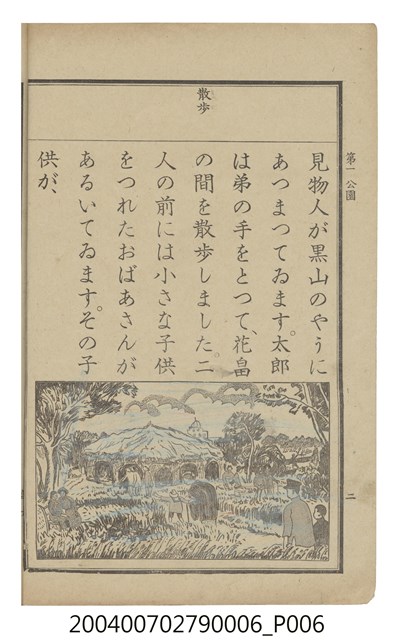 第一 公園
二
散歩
見物人が黒山のやうに
あつまつてゐます。太郎
は弟の手をとつて、花畠
の間を散歩しました。二
人の前には小さな子供
をつれたおばあさんが
あるいてゐます。その子
供が、
200400702790006_P006